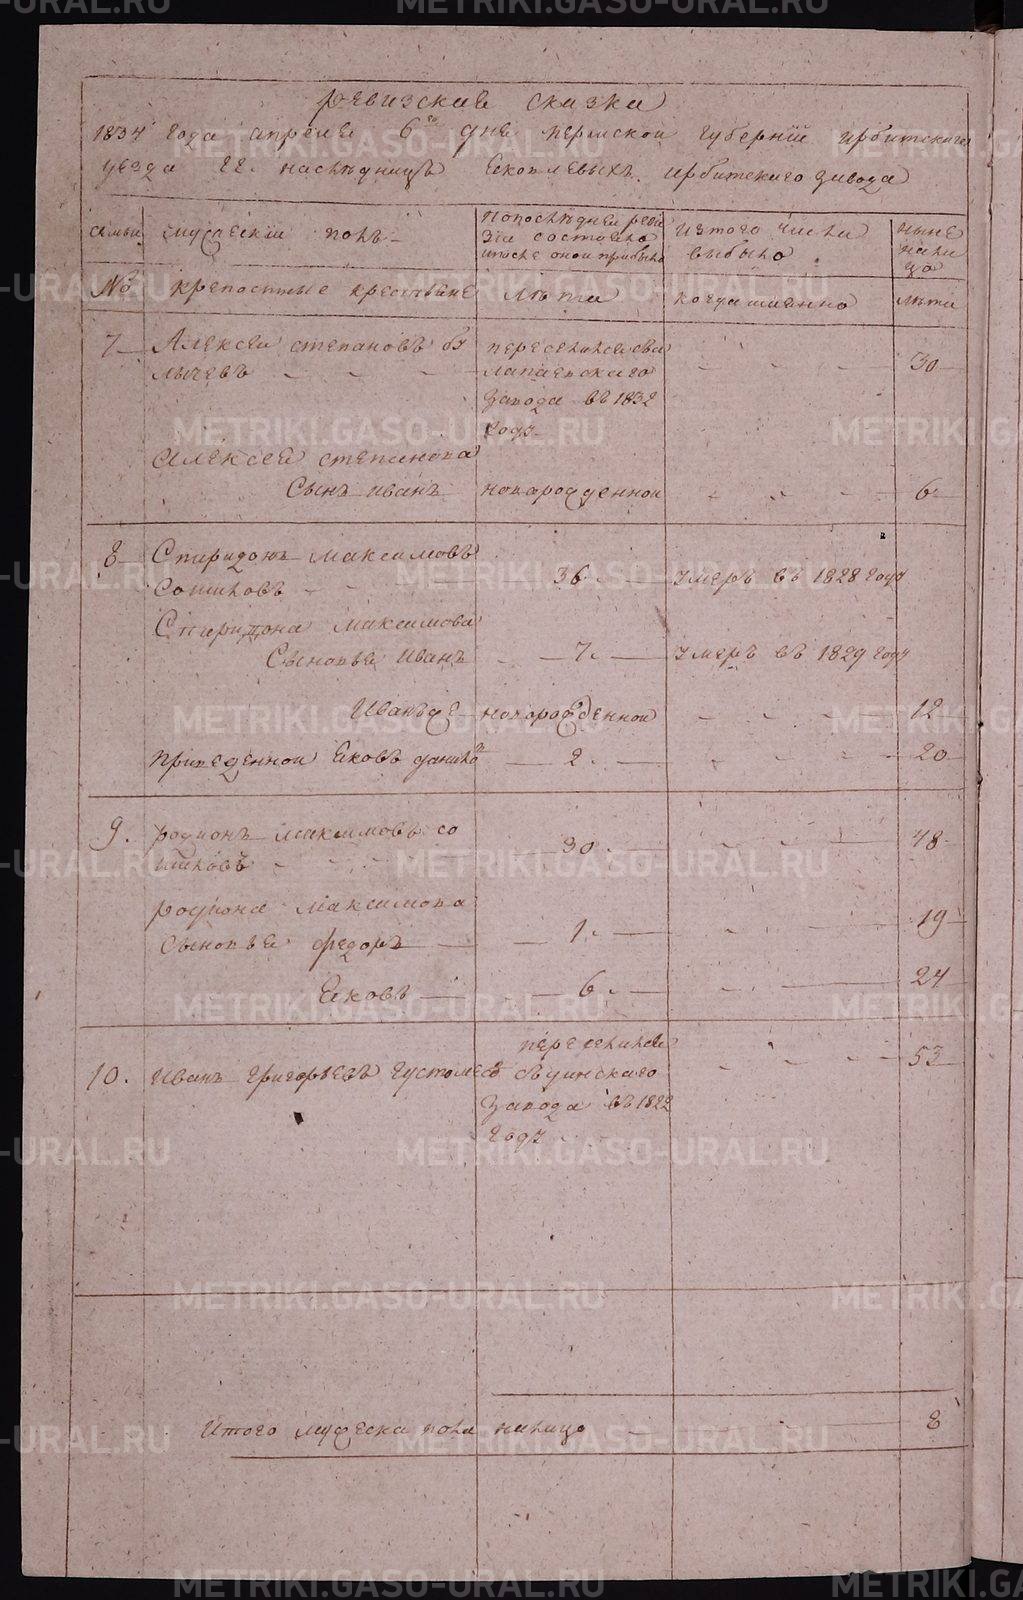 ревизская сказка
1834 года апреля 6го дня пермской губернии ирбитского
уезда гг. наследницъ яковлевыхъ ирбитского завода
семьи
мужеский полъ
попоследней реви
зии состояло
ипосле оной прибыло
изтого числа
выбыло
ныне
нали
цо
№
крепостные крестьяне
лета
когда имянно
лета
7 Алексей степановъ бу
лычевъ
переселился изъ
лапаевского
завода въ 1832
году
30
Алексея степанова
Сынъ иванъ новорожденной 6
8 Спиридонъ максимовъ
36 умеръ въ 1828 году
Спиридона максимова
Сыновья иванъ 7 умеръ въ 1829 году
Иванъ же новорожденной 12
приведенной яковъ данило 2 20
9. родионъ максимовъ со
30 48
родиона максимова 19
Сыновья федоръ 1
яковъ 6 24
переселился 53
10. иванъ григорьевъ густомесовъ съуинского
завода въ 1822
году
Итого мужеска пола налицо 8
METRIKI.GASO-URAL.RU